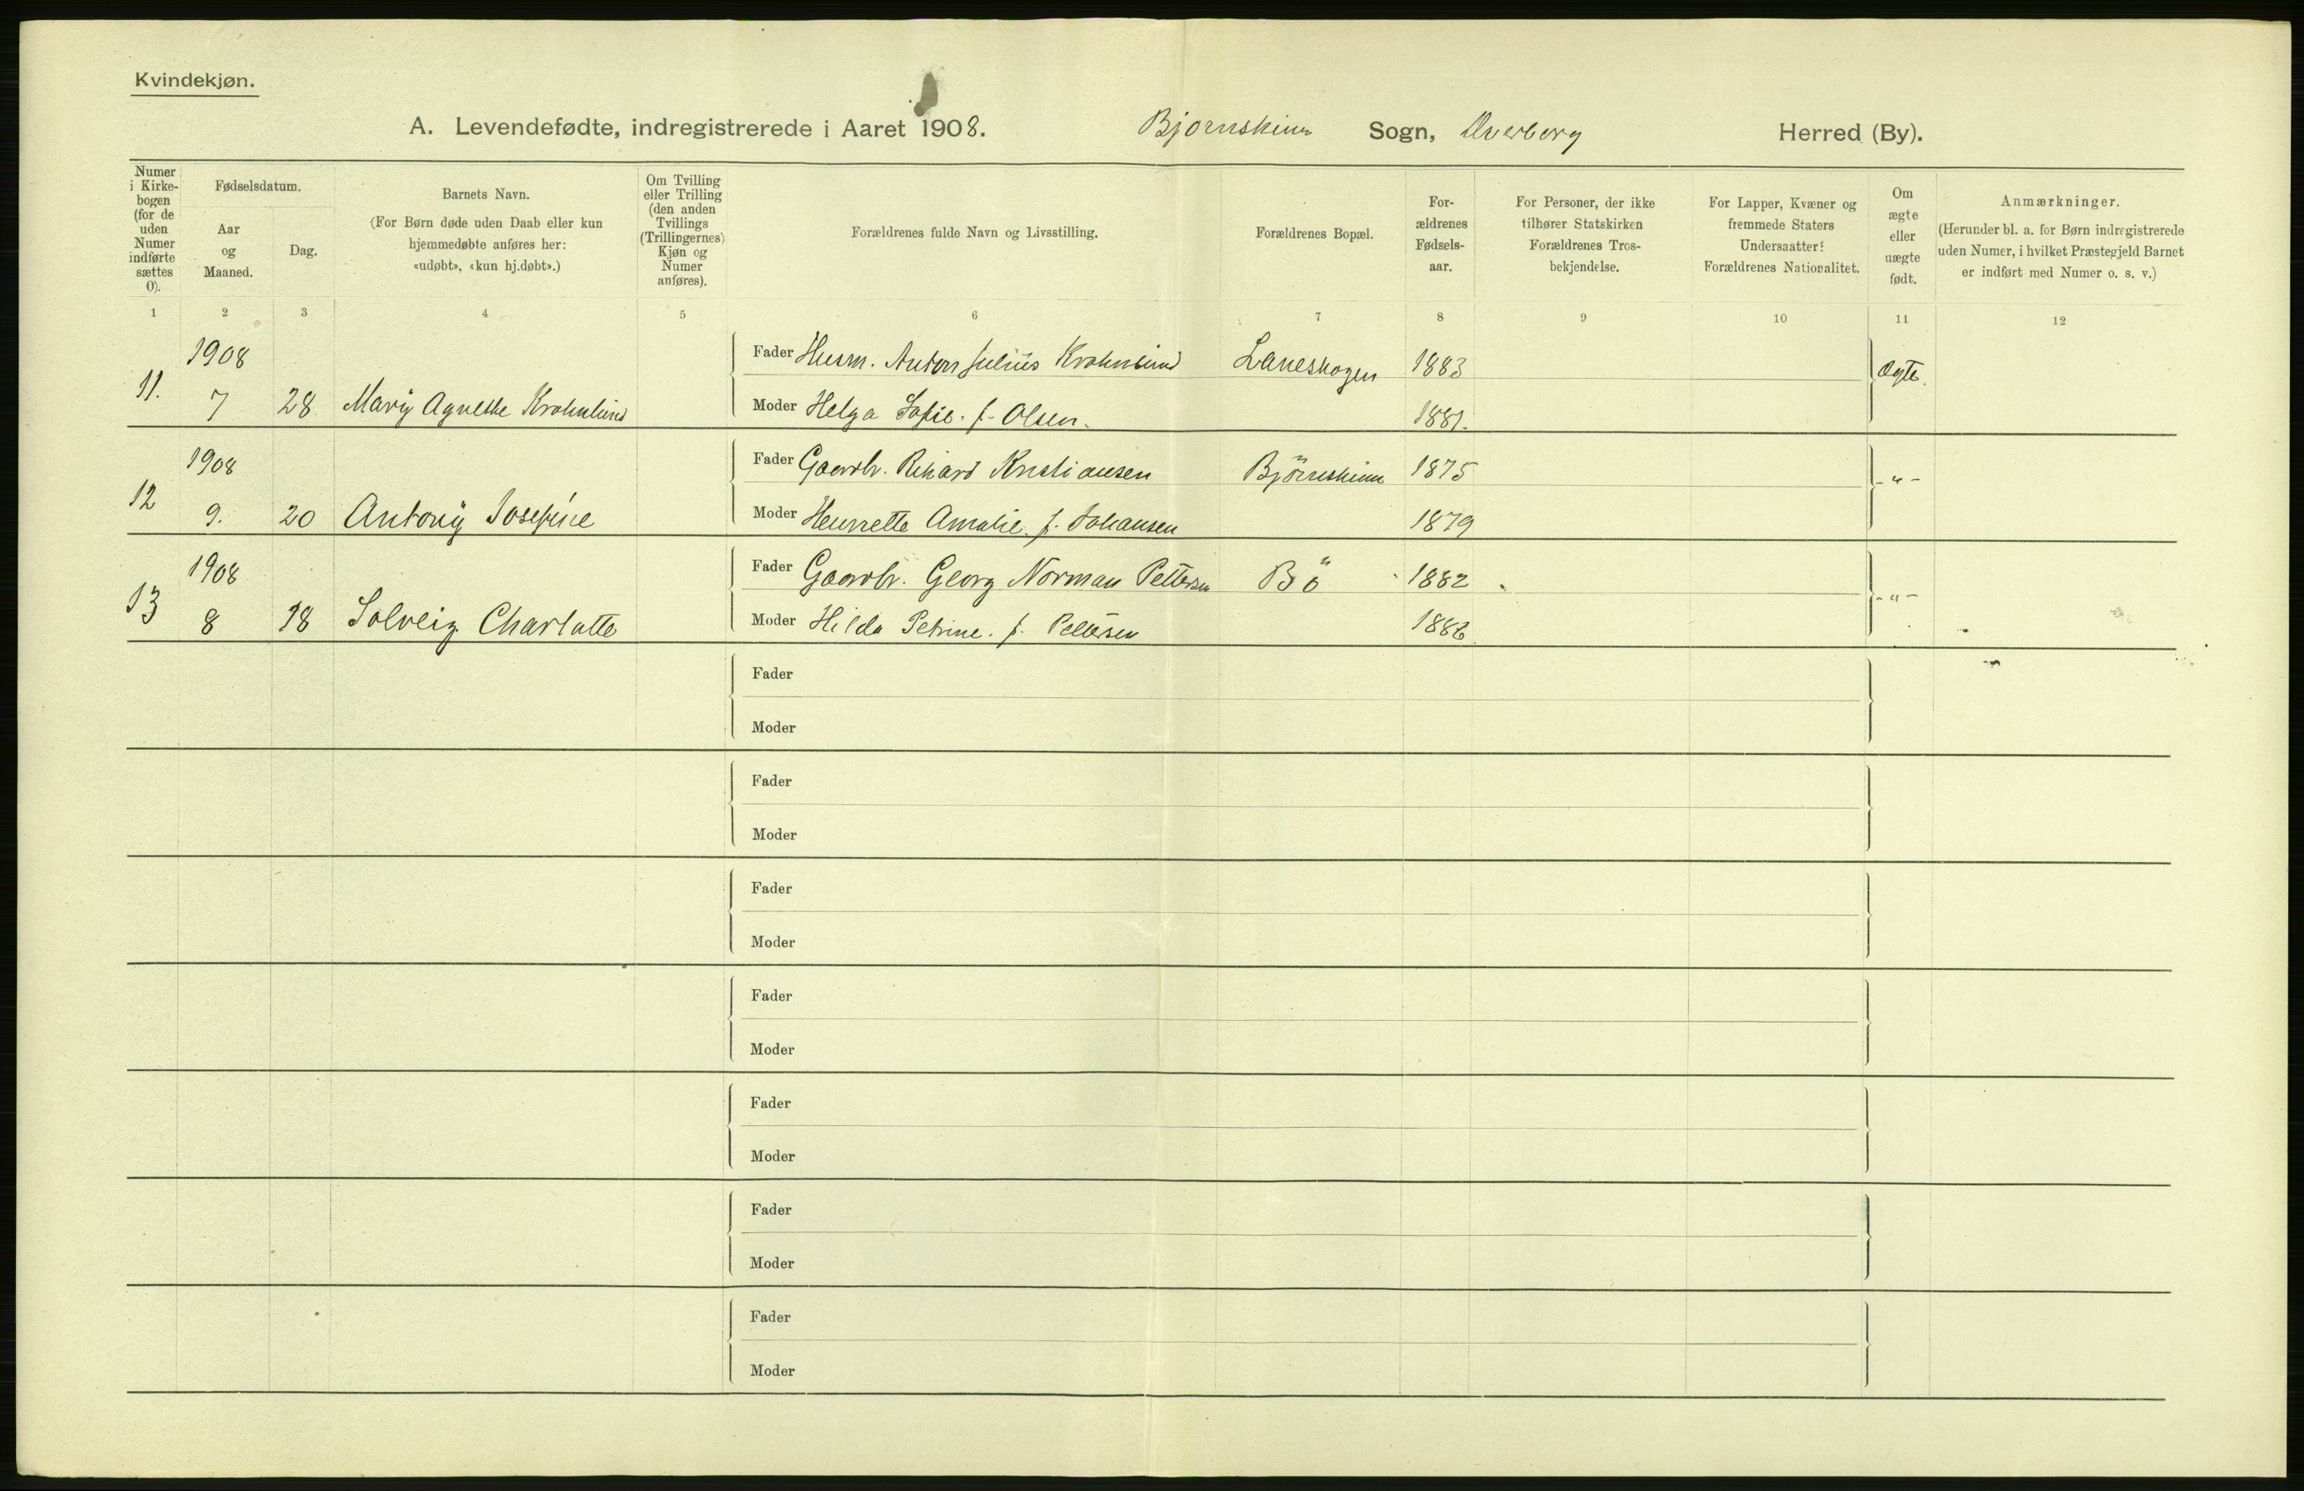 Kvindekjøn.
A. Levendefødte, indregistrerede i Aaret 1908. Bjørnskinn Sogn, Dverberg Herred (By).
Numer i Kirkebogen (for de uden Numer indførte sættes 0).
Fødselsdatum.
Aar og Maaned.
Dag.
Barnets Navn.
(For Børn døde uden Daab eller kun hjemmedøbte anføres her: «udøbt», «kun hj.døbt».)
Om Tvilling eller Trilling (den anden Tvillings (Trillingernes) Kjøn og Numer anføres).
Forældrenes fulde Navn og Livsstilling.
Forældrenes Bopæl.
Forældrenes Fødselsaar.
For Personer, der ikke tilhører Statskirken Forældrenes Trosbekjendelse.
For Lapper, Kvæner og fremmede Staters Undersaatter: Forældrenes Nationalitet.
Om ægte eller uægte født.
Anmærkninger.
(Herunder bl. a. for Børn indregistrerede uden Numer, i hvilket Præstegjeld Barnet er indført med Numer o. s. v.)
1 2 3 4 5 6 7 8 9 10 11 12
11. 1908 7 28 Mariy Agnethe Krohnlund
Fader Husm. Anton Julius Krohnlund Laneskogen 1883 Ægte.
Moder Helga Sofie. f. Olsen. 1881.
12 1908 9. 20 Antoniy Josefine
Fader Gaardbr. Rikard Kristiansen Bjørnskinn 1875 - " -
Moder Henrette Amalie. f. Johansen 1879
13 1908 8 18 Solveig Charlotte
Fader Gaardbr. Georg Norman Pettersen Bö 1882 - " -
Moder Hilda Petrine. f. Pettersen 1886
Fader
Moder
Fader
Moder
Fader
Moder
Fader
Moder
Fader
Moder
Fader
Moder
Fader
Moder